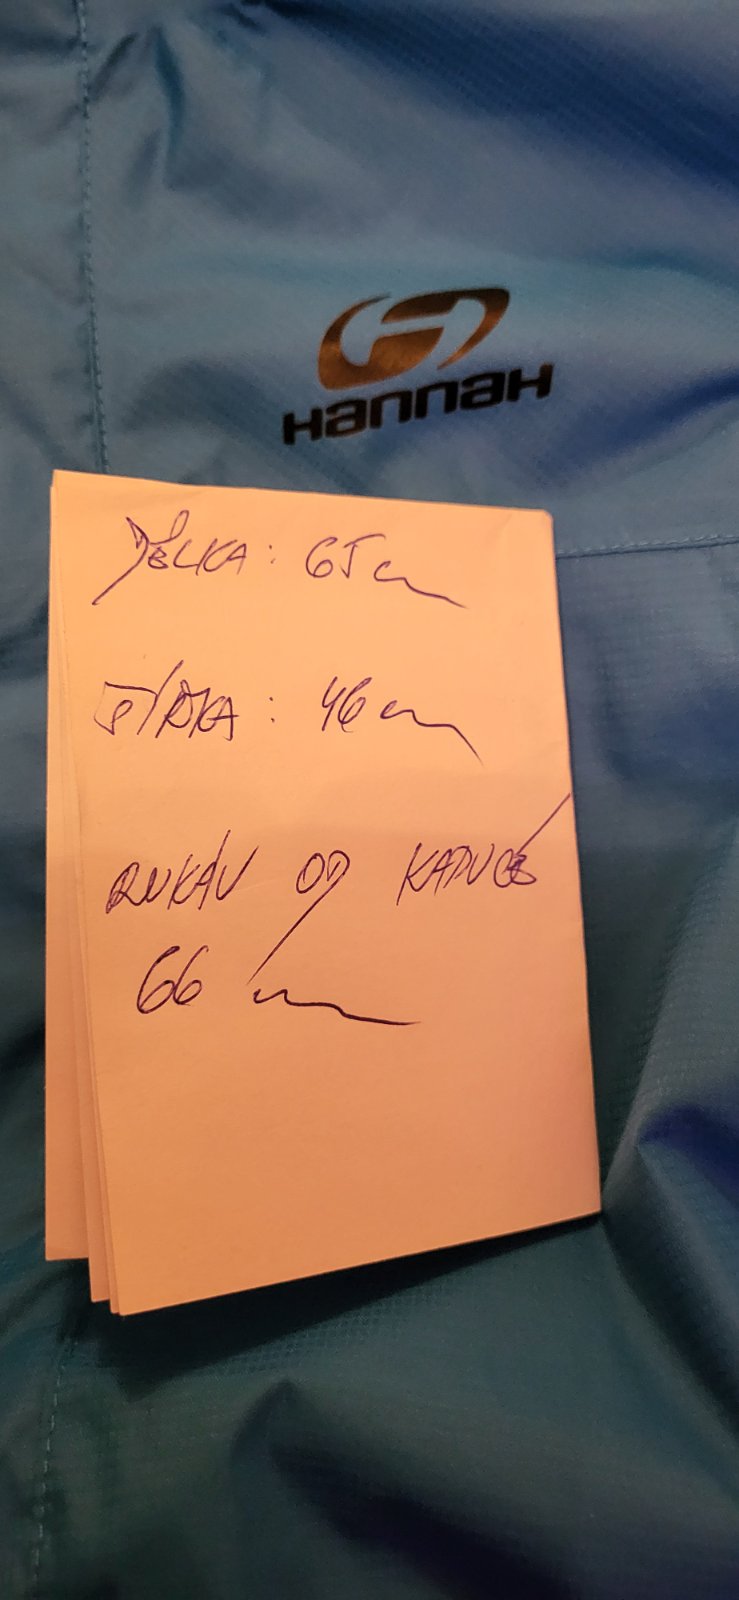 Hannah
DÉLKA: 65 cm
ŠÍŘKA: 46 cm
RUKÁV OD KAPUCE
66 cm